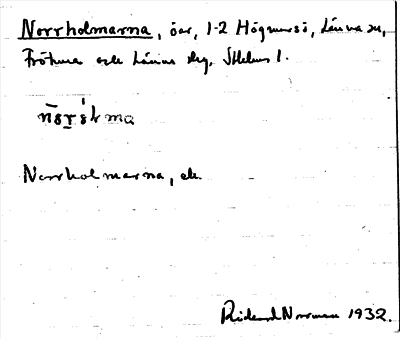 Norrholmarna, öar, 1-2 Högmarsö, Länna sn,
Frötuna och Länna skg, Sthlms l.
Norrholmarna, ek.
Rickard Norrman 1932.